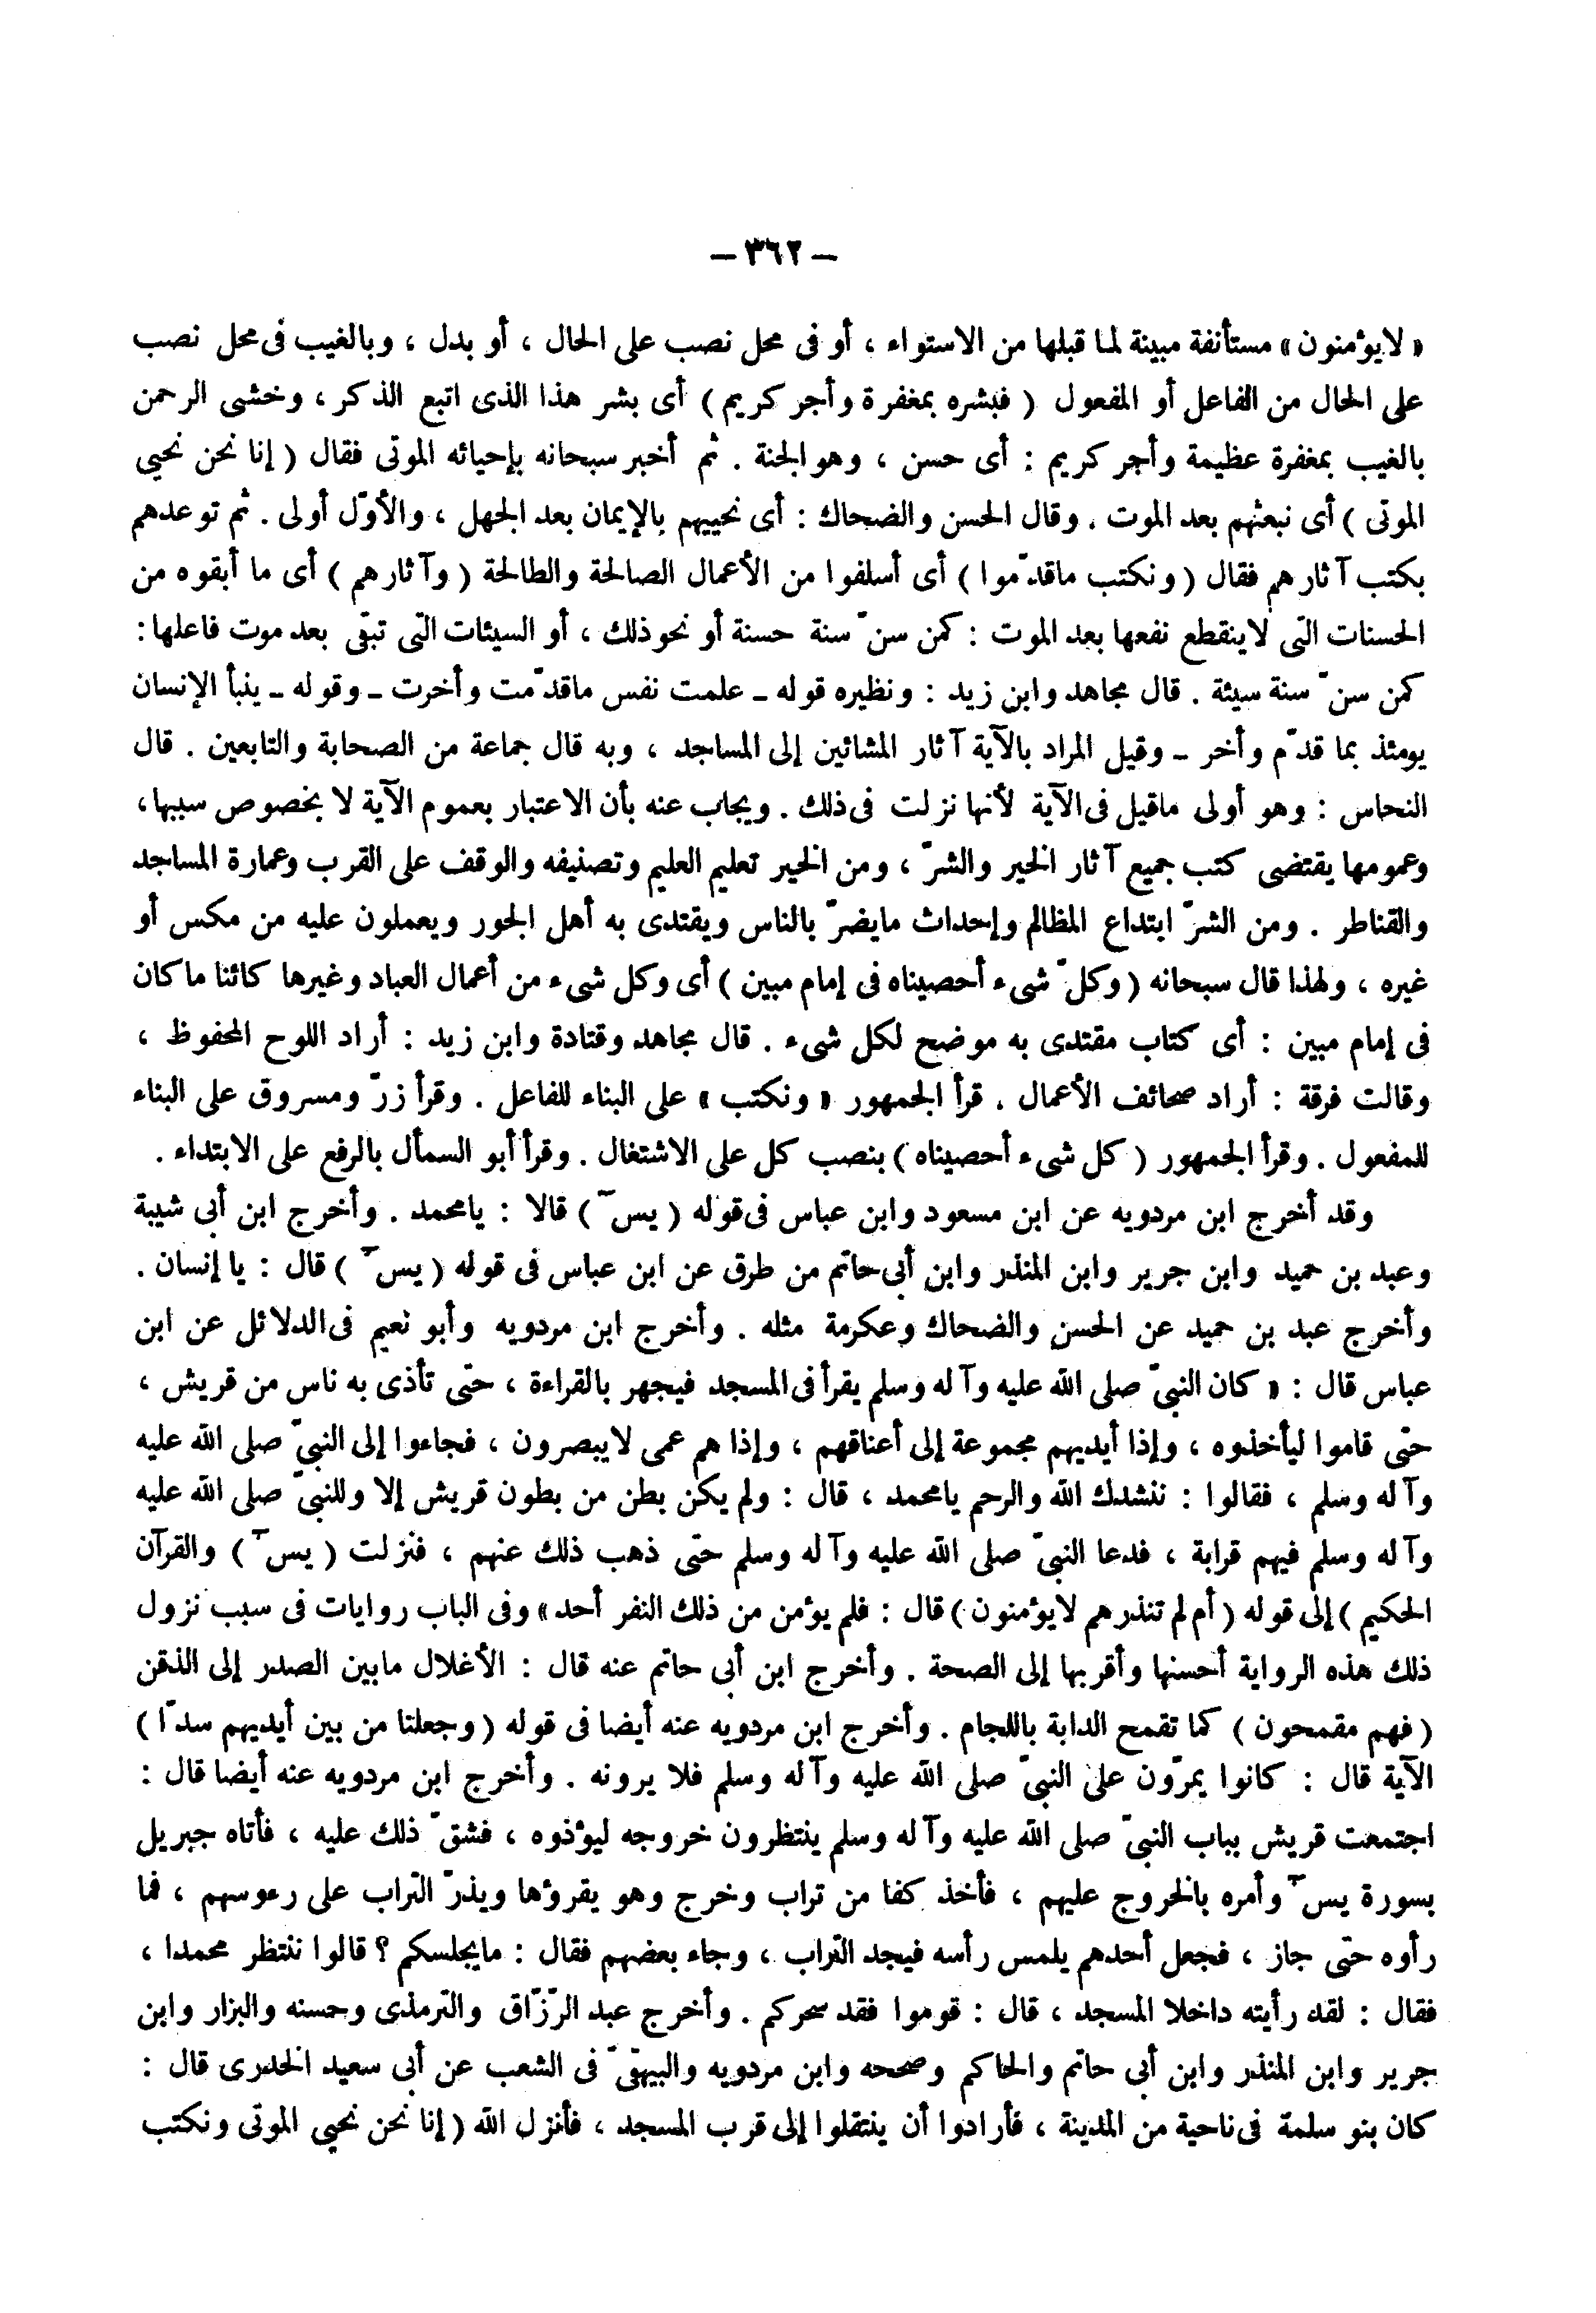 — ٣٦٢ —
« لايؤمنون » مستأنفة مبينة لما قبلها من الاستواء ، أو فى محل نصب على الحال ، أو بدل ، وبالغيب فى محل نصب
على الحال من الفاعل أو المفعول ( فبشره بمغفرة وأجر كريم ) أى بشر هذا الذى اتبع الذكر ، وخشى الرحمن
بالغيب بمغفرة عظيمة وأجر كريم : أى حسن ، وهو الجنة . ثم أخبر سبحانه بإحيائه الموتى فقال ( إنا نحن نحيى
الموتى ) أى نبعثهم بعد الموت . وقال الحسن والضحاك : أى نحييهم بالإيمان بعد الجهل ، والأوّل أولى . ثم توعدهم
بكتب آثارهم فقال ( ونكتب ماقدّموا ) أى أسلفوا من الأعمال الصالحة والطالحة ( وآثارهم ) أى ما أبقوه من
الحسنات التى لاينقطع نفعها بعد الموت : كمن سنّ سنة حسنة أو نحو ذلك ، أو السيئات التى تبقى بعد موت فاعلها :
كمن سنّ سنة سيئة . قال مجاهد وابن زيد : ونظيره قوله ـ علمت نفس ماقدّمت وأخرت ـ وقوله ـ ينبأ الإنسان
يومئذ بما قدّم وأخر ـ وقيل المراد بالآية آثار المشائين إلى المساجد ، وبه قال جماعة من الصحابة والتابعين . قال
النحاس : وهو أولى ماقيل فى الآية لأنها نزلت فى ذلك . ويجاب عنه بأن الاعتبار بعموم الآية لا بخصوص سببها ،
وعمومها يقتضى كتب جميع آثار الخير والشرّ ، ومن الخير تعليم العليم وتصنيفه والوقف على القرب وعمارة المساجد
والقناطر . ومن الشرّ ابتداع المظالم وإحداث مايضرّ بالناس ويقتدى به أهل الجور ويعملون عليه من مكس أو
غيره ، ولهذا قال سبحانه ( وكلّ شىء أحصيناه فى إمام مبين ) أى وكل شىء من أعمال العباد وغيرها كائنا ما كان
فى إمام مبين : أى كتاب مقتدى به موضح لكل شىء . قال مجاهد وقتادة وابن زيد : أراد اللوح المحفوظ ،
وقالت فرقة : أراد صحائف الأعمال . قرأ الجمهور « ونكتب » على البناء للفاعل . وقرأ زرّ ومسروق على البناء
للمفعول . وقرأ الجمهور ( كل شىء أحصيناه ) بنصب كل على الاشتغال . وقرأ أبو السمأل بالرفع على الابتداء .
وقد أخرج ابن مردويه عن ابن مسعود وابن عباس فى قوله ( يسۤ ) قالا : يامحمد . وأخرج ابن أبى شيبة
وعبد بن حميد وابن جرير وابن المنذر وابن أبى حاتم من طرق عن ابن عباس فى قوله ( يسۤ ) قال : يا إنسان .
وأخرج عبد بن حميد عن الحسن والضحاك وعكرمة مثله . وأخرج ابن مردويه وأبو نعيم فى الدلائل عن ابن
عباس قال : « كان النبىّ صلى الله عليه وآله وسلم يقرأ فى المسجد فيجهر بالقراءة ، حتى تأذى به ناس من قريش ،
حتى قاموا ليأخذوه ، وإذا أيديهم مجموعة إلى أعناقهم ، وإذا هم عمى لايبصرون ، فجاءوا إلى النبىّ صلى الله عليه
وآله وسلم ، فقالوا : ننشدك الله والرحم يامحمد ، قال : ولم يكن بطن من بطون قريش إلا وللنبىّ صلى الله عليه
وآله وسلم فيهم قرابة ، فدعا النبىّ صلى الله عليه وآله وسلم حتى ذهب ذلك عنهم ، فنزلت ( يسۤ ) والقرآن
الحكيم ) إلى قوله ( أم لم تنذرهم لايؤمنون ) قال : فلم يؤمن من ذلك النفر أحد » وفى الباب روايات فى سبب نزول
ذلك هذه الرواية أحسنها وأقربها إلى الصحة . وأخرج ابن أبى حاتم عنه قال : الأغلال مابين الصدر إلى الذقن
( فهم مقمحون ) كما تقمح الدابة باللجام . وأخرج ابن مردويه عنه أيضا فى قوله ( وجعلنا من بين أيديهم سدّا )
الآية قال : كانوا يمرّون على النبىّ صلى الله عليه وآله وسلم فلا يرونه . وأخرج ابن مردويه عنه أيضا قال :
اجتمعت قريش بباب النبىّ صلى الله عليه وآله وسلم ينتظرون خروجه ليؤذوه ، فشقّ ذلك عليه ، فأتاه جبريل
بسورة يسۤ وأمره بالخروج عليهم ، فأخذ كفا من تراب وخرج وهو يقرؤها ويذرّ التراب على رءوسهم ، فما
رأوه حتى جاز ، فجعل أحدهم يلمس رأسه فيجد التراب ، وجاء بعضهم فقال : مايجلسكم ؟ قالوا ننتظر محمدا ،
فقال : لقد رأيته داخلا المسجد ، قال : قوموا فقد سحركم . وأخرج عبد الرّزّاق والترمذى وحسنه والبزار وابن
جرير وابن المنذر وابن أبى حاتم والحاكم وصححه وابن مردويه والبيهقىّ فى الشعب عن أبى سعيد الخدرى قال :
كان بنو سلمة فى ناحية من المدينة ، فأرادوا أن ينتقلوا إلى قرب المسجد ، فأنزل الله ( إنا نحن نحيى الموتى ونكتب